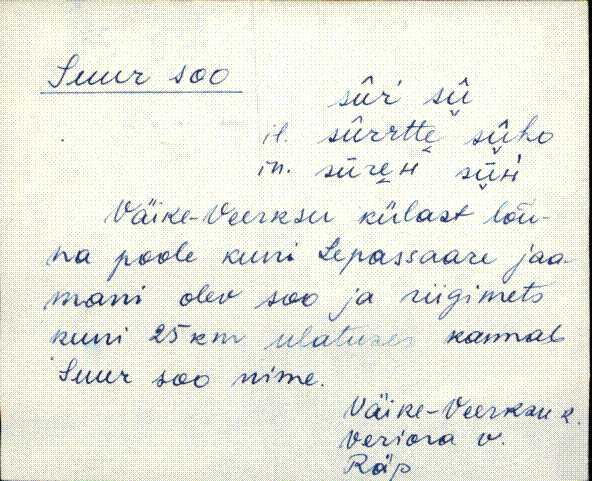 Suur soo
sūrʾ sū̬
il. sūrrtte̬ sū̬ho
in. sūre̬H sū̬H
Väike-Veerksu külast lõu-
na poole kuni Lepassaare jaa-
mani olev soo ja riigimets
kuni 25 km ulatuses kannab
Suur soo nime.
Väike-Veerksu k.
Veriora v.
Räp